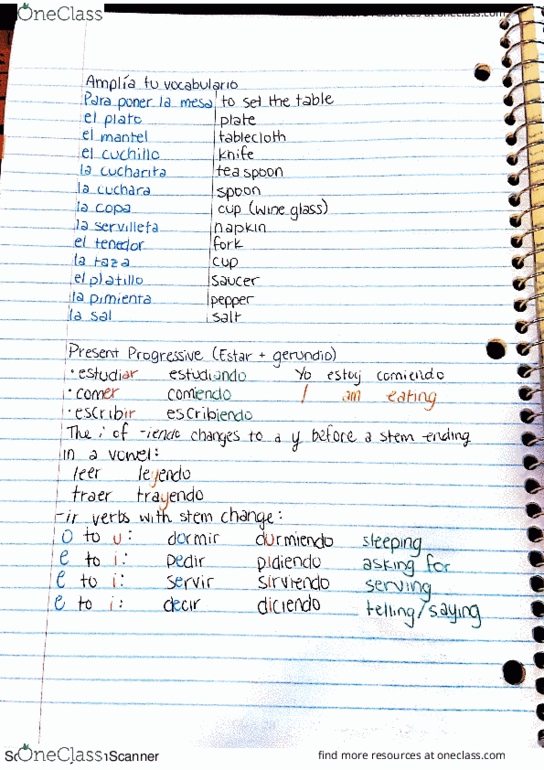 OneClass
find more resources at oneclass.com
Amplía tu vocabulario
Para poner la mesa to set the table
el plato plate
el mantel tablecloth
el cuchillo knife
la cucharita teaspoon
la cuchara spoon
la copa cup (wine glass)
la servilleta napkin
el tenedor fork
la taza cup
el platillo saucer
la pimienta pepper
la sal salt
Present Progressive (Estar + gerundio)
• estudiar estudiando Yo estoy comiendo
• comer comiendo I am eating
• escribir escribiendo
The i of -iendo changes to a y before a stem ending
in a vowel:
leer leyendo
traer trayendo
-ir verbs with stem change:
o to u: dormir durmiendo sleeping
e to i: pedir pidiendo asking for
e to i: servir sirviendo serving
e to i: decir diciendo telling/saying
OneClass Scanner
find more resources at oneclass.com